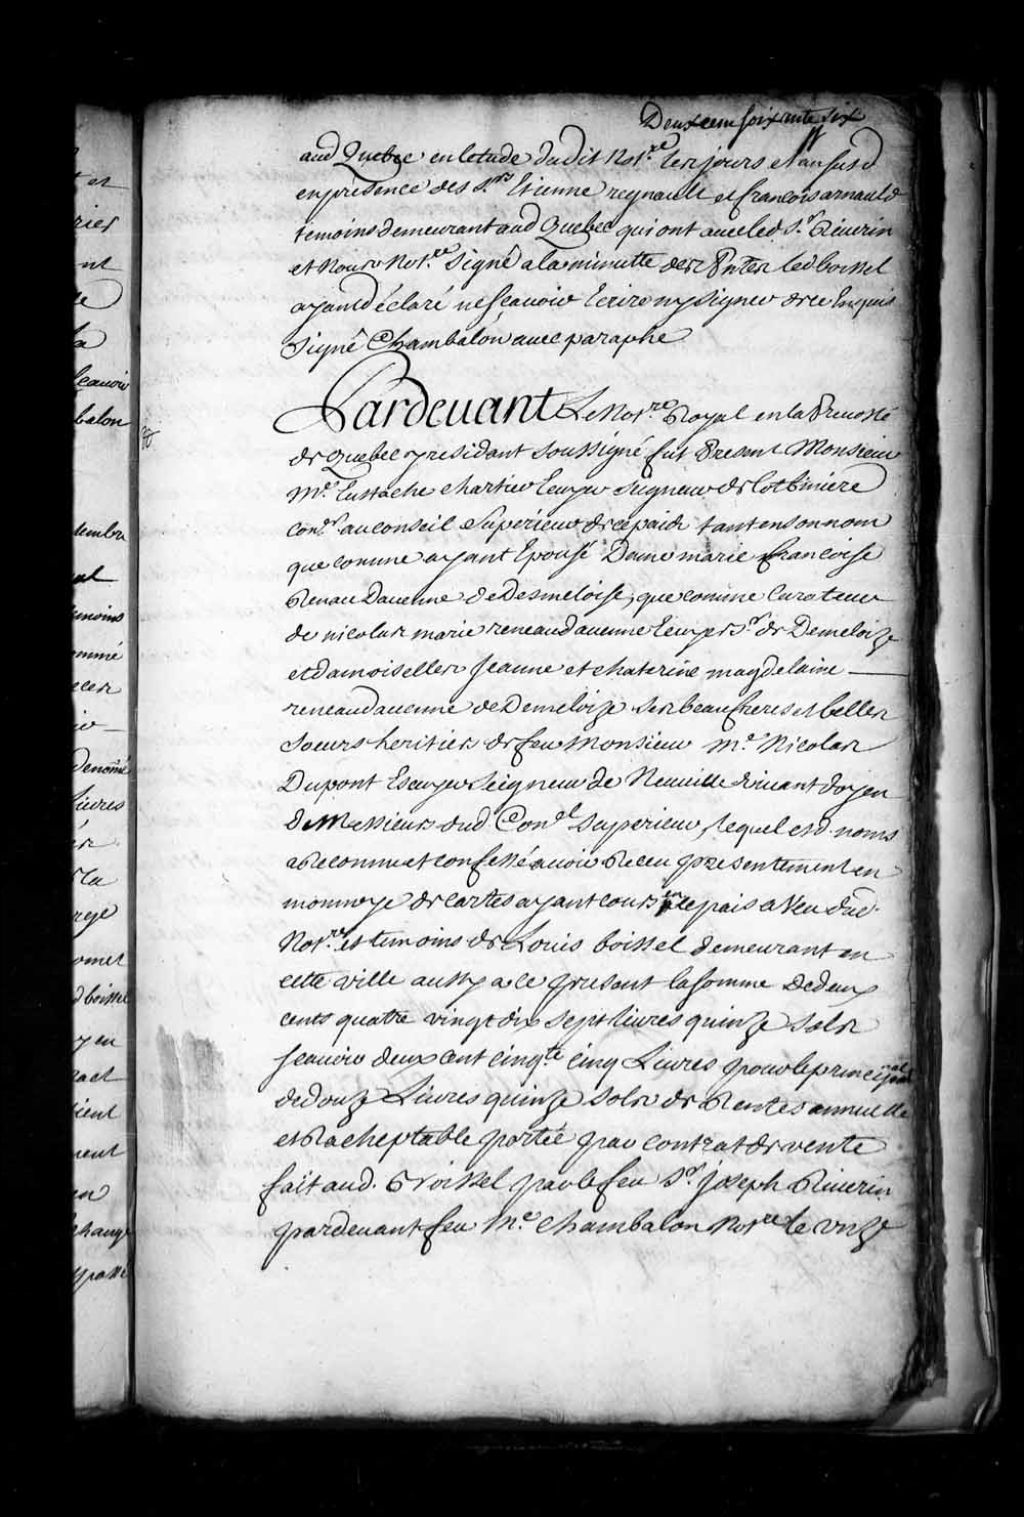 Deux cens soixante six
aud Quebec en letude dudit Not.re les jours et an susd
en presence des S.rs Etienne regnault et francois arnauld
temoins demeurant aud Quebec qui ont avec led S.r Riverin
et Nousd Not.re signé a la minutte des pntes led boissel
ayant déclaré ne scavoir Ecrire ny signer de ce Enquis
signé Chambalon avec paraphe
Pardevant Le Not.re Royal en la Prevosté
de Quebec y residant soussigné fut Present Monsieur
M.e Eustache chartier Ecuyer seigneur de lotbiniere
con.er au conseil superieur de ce païs tant en son nom
que comme ayant Epousé Dame marie francoise
Renau Davenne de Desmeloise, que comme Curateur
de nicolas marie reneaud avenne Ecuyer S.r de Demeloize
et damoiselles Jeanne et chaterine magdelaine
reneaud avenne de Demeloize ses beau freres et belles
soeurs heritiers de feu Monsieur M.e Nicolas
Dupont Escuyer seigneur de Neuville vivant doyen
de Messieurs dud Con.el superieur, lequel esd. noms
a Reconnu et confessé avoir Receu presentement en
monnoye de cartes ayant cours en ce pais a veu dud.
Not.re et temoins de Louis boissel demeurant en
cette ville aussy a ce present la somme de deux
cents quatre vingt dix sept livres quinze sols
scavoir deux cent cinq.te cinq Livres pour le principal
de douze Livres quinze sols de Rentes annuelle
et Racheptable portée par contrat de vente
fait aud. Boissel par le feu S.r joseph Riverin
pardevant feu M.e Chambalon Not.re le onze